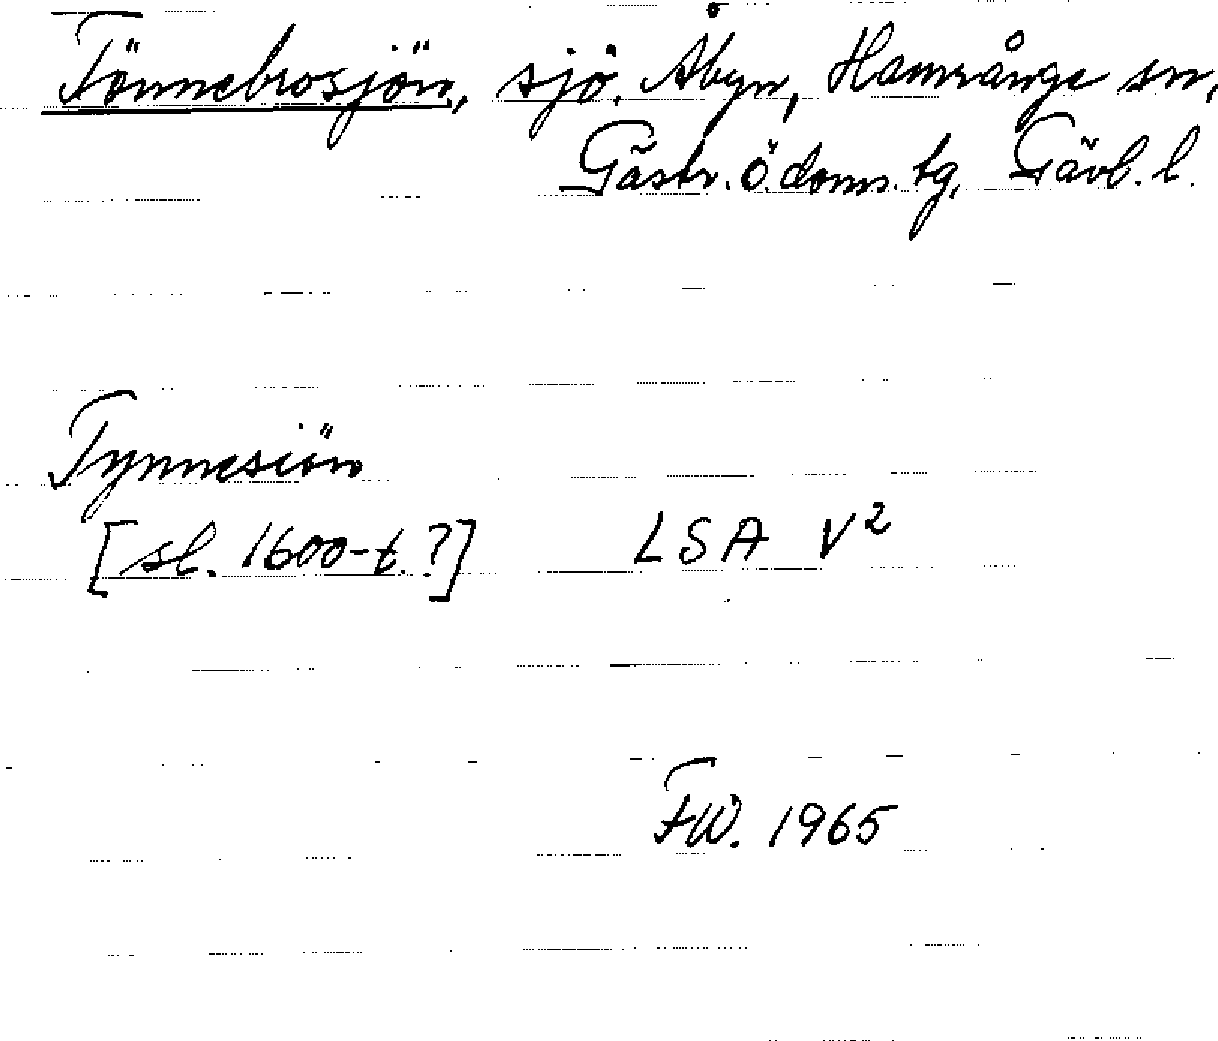 Tönnebrosjön, sjö, Åbyn, Hamrånge sn,
Gästr. ö. doms. tg, Gävl. l.
Tynnesiön
[sl. 1600-t. ?] LSA V²
FW. 1965